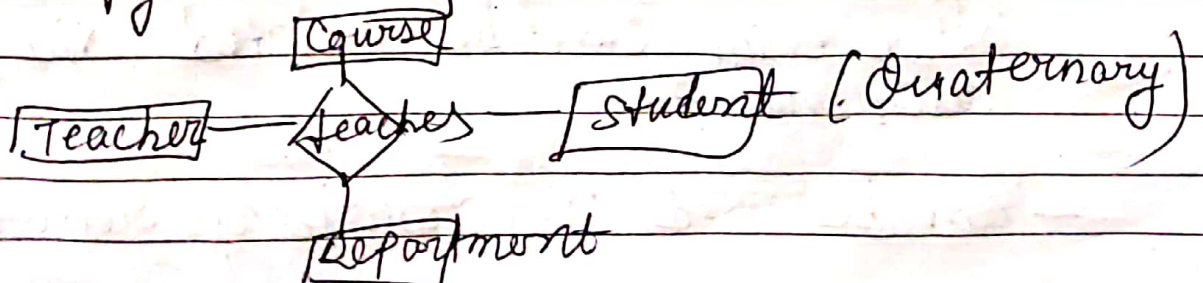 Course
Teacher teaches Student (Quaternary)
Department